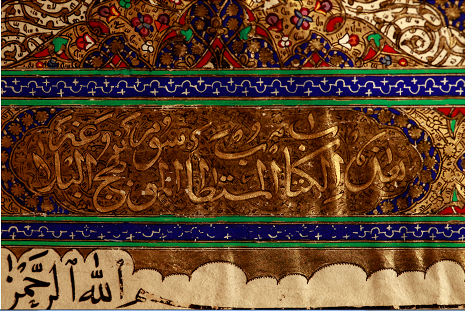 هذا الكتاب المستطاب الموسوم بنهج البلاغة
الله الرحمن